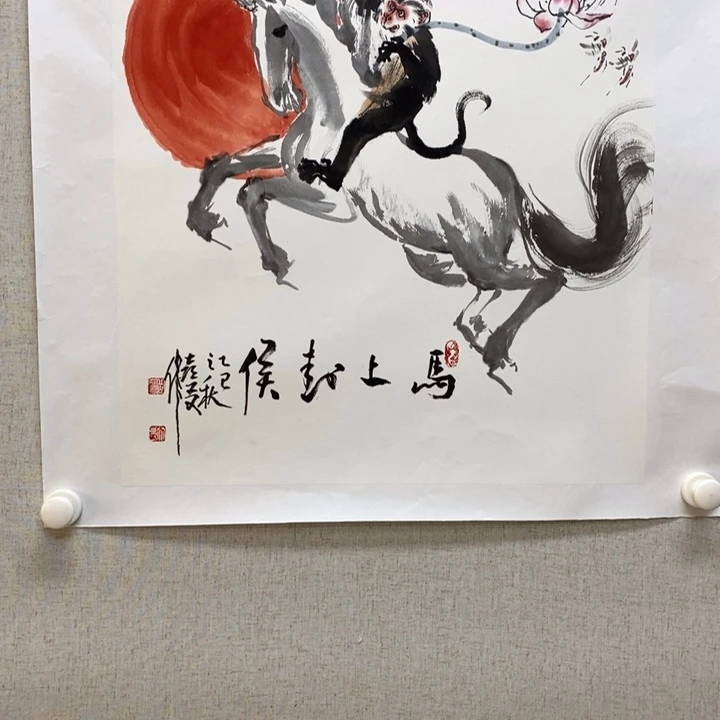 馬上封侯
乙巳秋